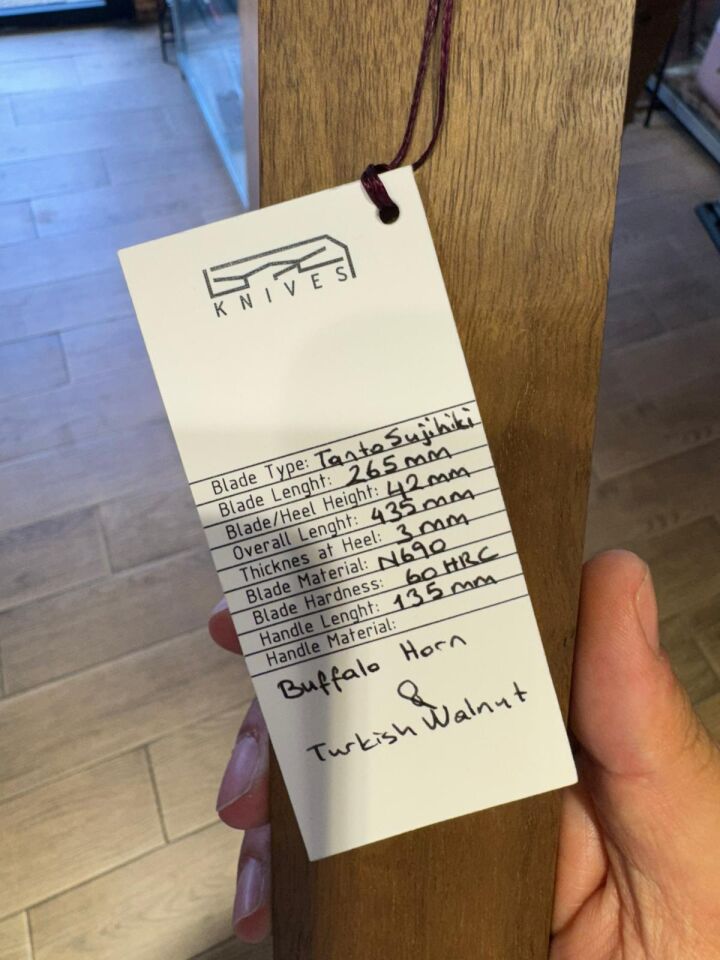 KNIVES
Blade Type: Tanto Sujihiki
Blade Lenght: 265 mm
Blade/Heel Height: 42 mm
Overall Lenght: 435 mm
Thicknes at Heel: 3 mm
Blade Material: N690
Blade Hardness: 60 HRC
Handle Lenght: 135 mm
Handle Material:
Buffalo Horn
&
Turkish Walnut